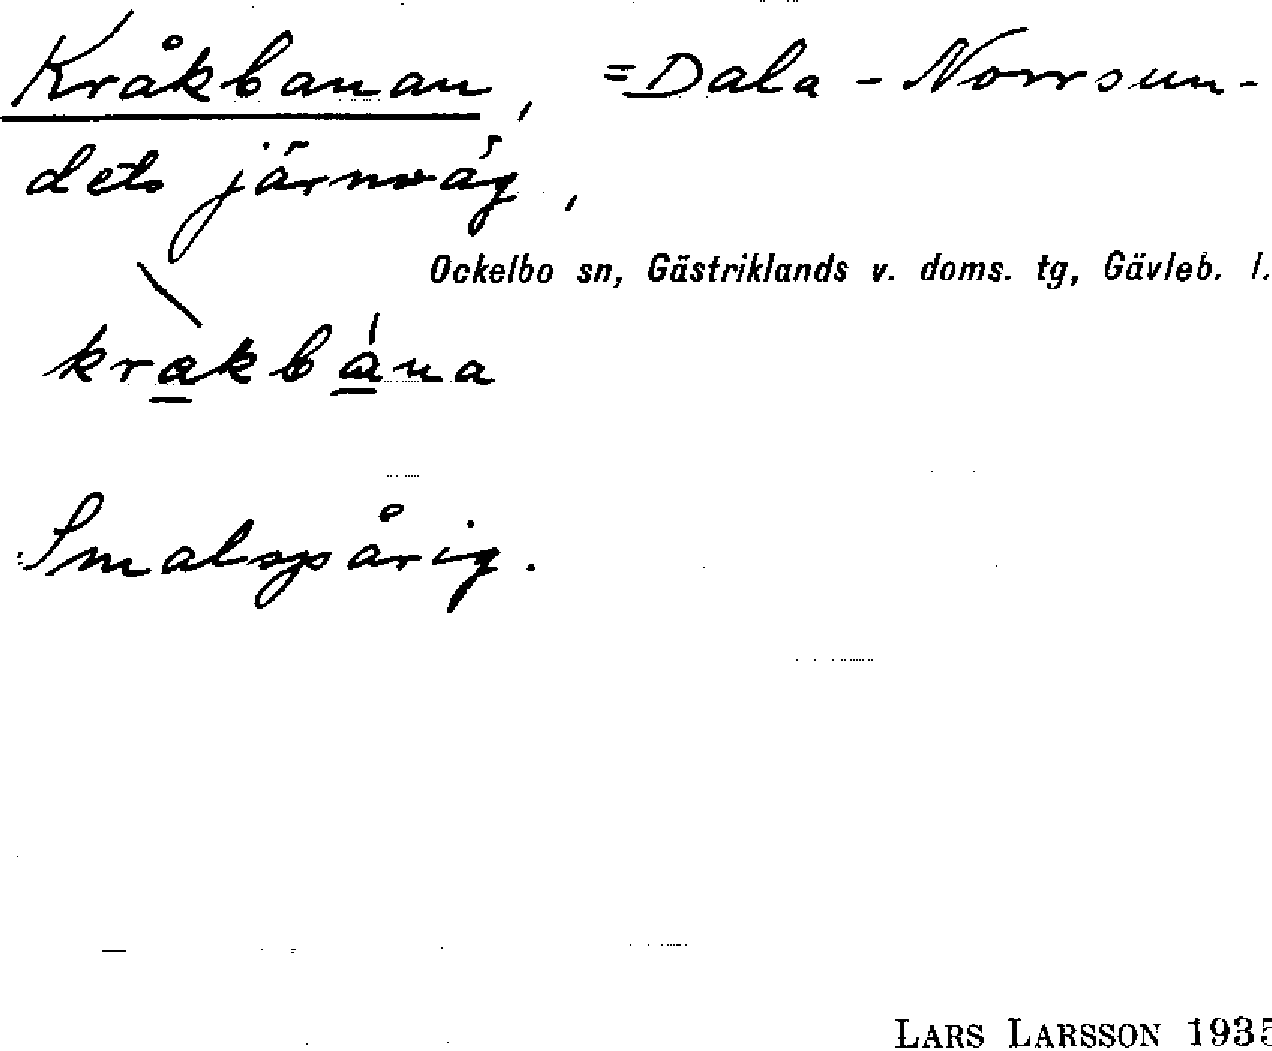 Kråkbanan, =Dala-Norrsun-
dets järnväg,
Ockelbo sn, Gästriklands v. doms. tg, Gävleb. l.
kràkbána
Smalspårig.
LARS LARSSON 1935